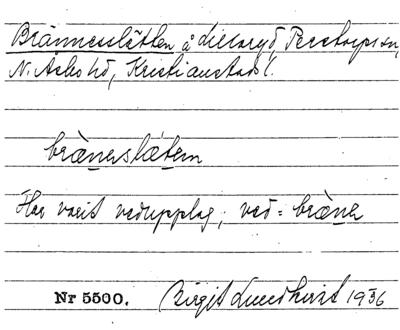 Brännesslätten å Lillaryd, Perstorps sn,
N. Åsbo hd, Kristianstads l.
brænerslætem
Har varit vedupplag, ved = bræner
Nr 5500. Birgit Lundkvist 1936